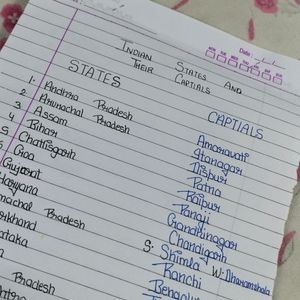 Date
INDIAN STATES AND
THEIR CAPTIALS
STATES CAPTIALS
1. Andhra Pradesh Amaravati
2 Arunachal Pradesh Itanagar
3 Assam Dispur
4 Bihar Patna
5 Chattisgarh Raipur
Goa Panaji
Gujarat Gandhinagar
Haryana Chandigarh
Pradesh S: Shimla W: Dharamshala
Ranchi
Pradesh